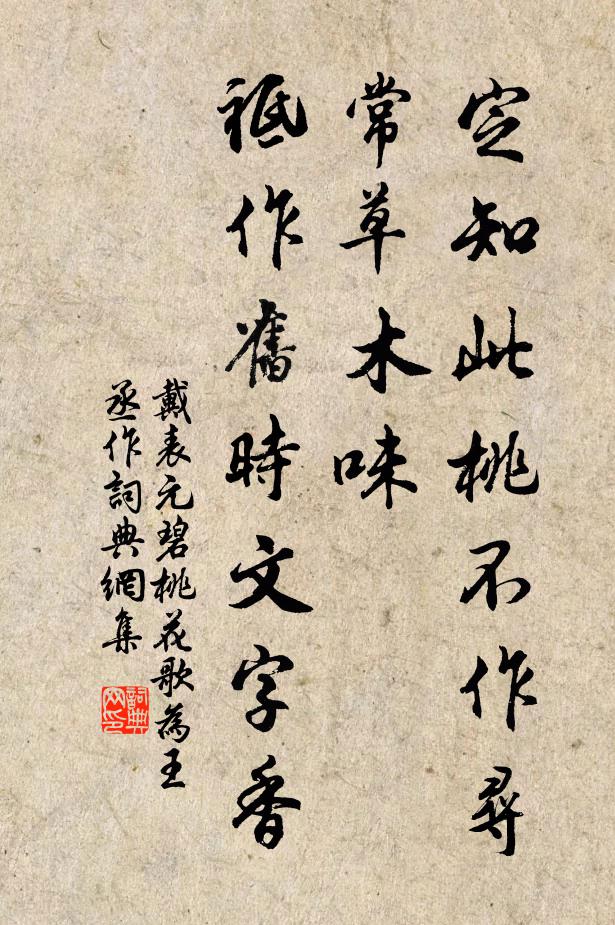 定知此桃不作尋
常草木味
祗作舊時文字香
戴表元碧桃花歌為王
丞作詞典網集
詞典網印